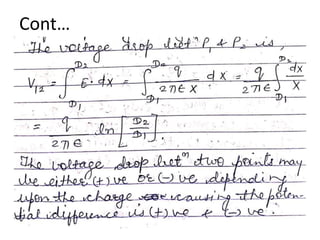 Cont…
The voltage drop betⁿ P₁ & P₂ is,
V₁₂ = ∫_{D₁}^{D₂} E·dx = ∫_{D₁}^{D₂} q / 2π∈x dx = q / 2π∈ ∫_{D₁}^{D₂} dx / x
= q / 2π∈ ln [D₂ / D₁].
The voltage drop betⁿ two points may
be either (+)ve or (-)ve depending
upon the charge causing the poten-
tial difference is (+)ve & (-)ve.